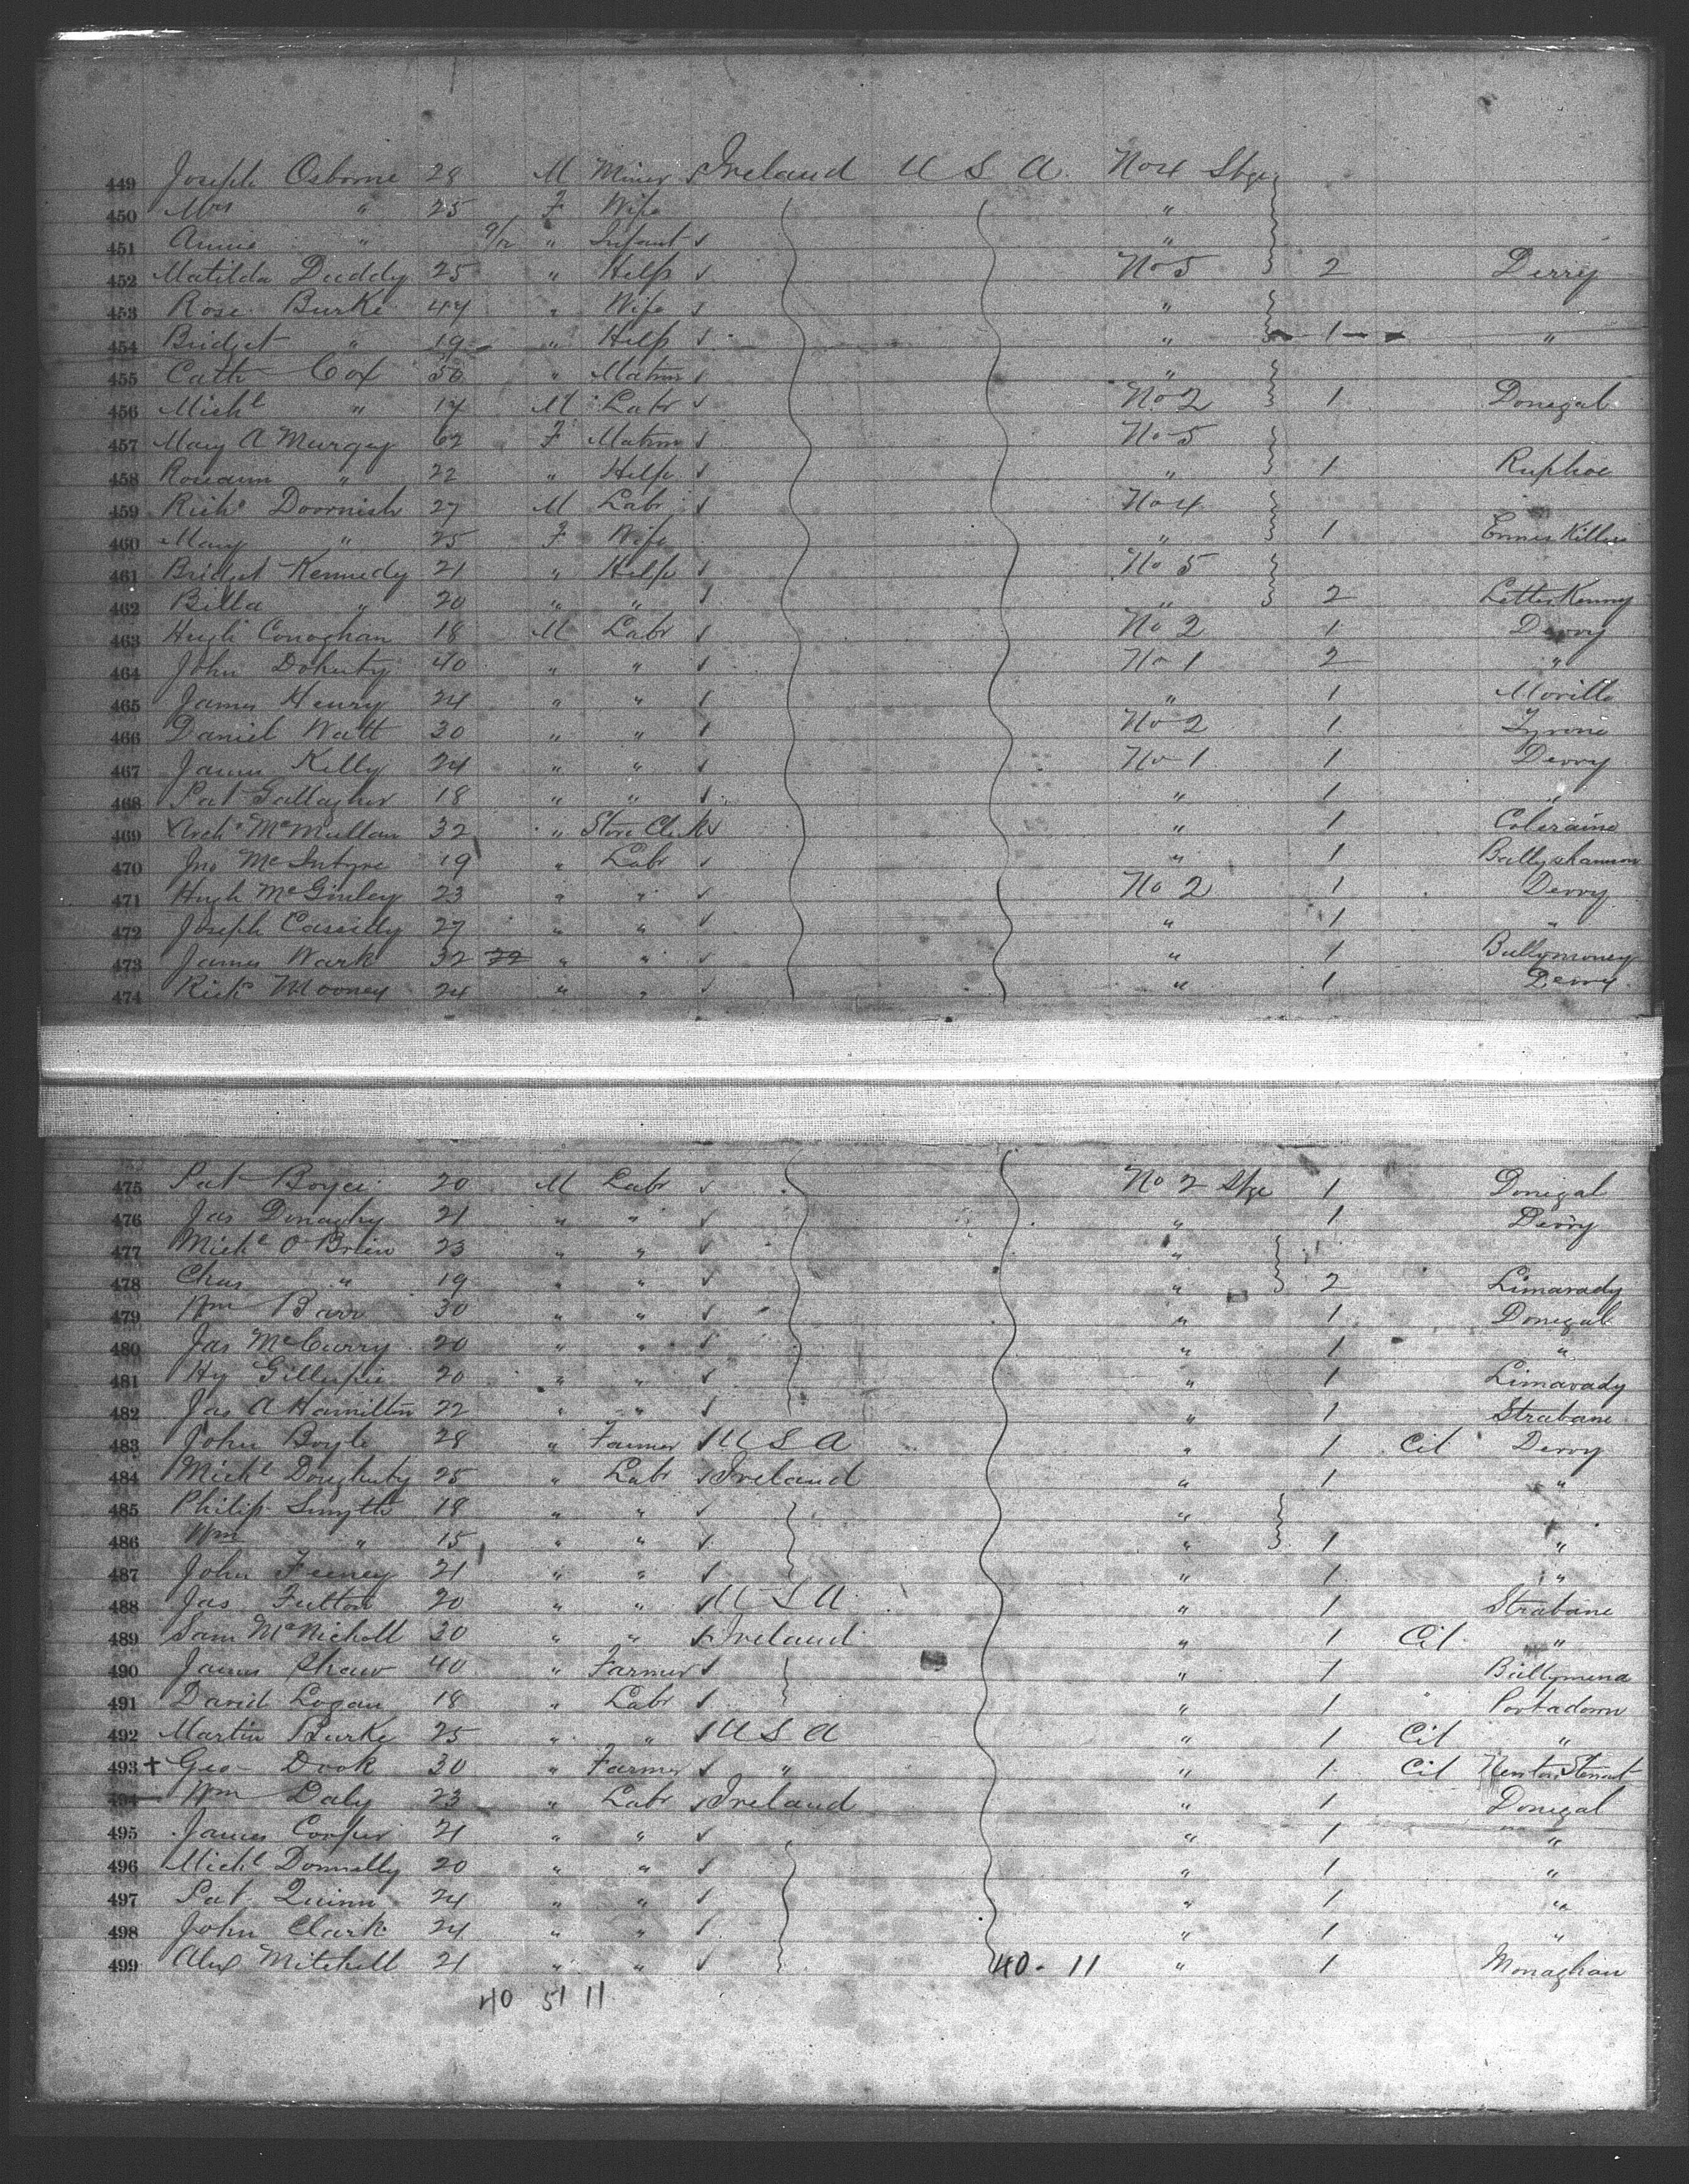 449 Joseph Osborne 28 M Miner Ireland U S A No 4 Stge
450 Mrs " 25 F Wife "
451 Annie " 9/12 " Infant "
452 Matilda Duddy 25 " Help No 5 2 Derry
453 Rose Burke 44 " Wife "
454 Bridget " 19 " Help " 1 "
455 Cath Cox 50 " Matron "
456 Michl " 17 M Labr No 2 1 Donegal
457 Mary A 62 F Matron No 5
458 Roseann " 22 " Help " 1 Raphoe
459 Richd Doornish 27 M Labr No 4
460 Mary " 25 F Wife " 1 Ennis Killen
461 Bridget Kennedy 21 " Help No 5
462 Billa " 20 " " " 2 Letter Kenny
463 Hugh Conoghan 18 M Labr No 2 1 Derry
464 John Doherty 40 " " No 1 2 "
465 James Henry 24 " " " 1 Moville
466 Daniel Watt 30 " " No 2 1 Tyrone
467 James Kelly 24 " " No 1 1 Derry
468 Pat Gallagher 18 " " " 1 "
469 Archd McMullan 32 " Store Clerk " 1 Coleraine
470 Jno McIntyre 19 " Labr " 1 Ballyshannon
471 Hugh McGinley 23 " " No 2 1 Derry
472 Joseph Cassidy 27 " " " 1 "
473 James Wark 32 " " " 1 Ballymoney
474 Richd Mooney 24 " " " 1 Derry
475 Pat Boyce 20 M Labr No 2 Stge 1 Donegal
476 Jas Donaghy 21 " " " 1 Derry
477 Michl O'Brien 23 " " "
478 Chas " 19 " " " 2 Limavady
479 Wm Barr 30 " " " 1 Donegal
480 Jas McCurry 20 " " " 1 "
481 Hy Gillespie 20 " " " 1 Limavady
482 Jas A Hamilton 22 " " " 1 Strabane
483 John Boyle 28 " Farmer U S A " 1 Cit Derry
484 Michl Dougherty 25 " Labr Ireland " 1 "
485 Philip Smyth 18 " " "
486 Wm " 15 " " " 1 "
487 John Feeney 21 " " " 1 "
488 Jas Fulton 20 " " U S A " 1 Strabane
489 Sam McNicholl 30 " " Ireland " 1 Cit "
490 James Shaw 40 " Farmer " 1 Ballymena
491 David Logan 18 " Labr " 1 " Portadown
492 Martin Burke 25 " " U S A " 1 Cit "
493 + Geo Dook 30 " Farmer " " 1 Cit Newton Stewart
494 Wm Daly 23 " Labr Ireland " 1 Donegal
495 James Cooper 21 " " " 1 "
496 Michl Donnelly 20 " " " 1 "
497 Pat Quinn 24 " " " 1 "
498 John Clark 24 " " " 1 "
499 Alex Mitchell 21 " " 40. 11 " 1 Monaghan
40 51 11